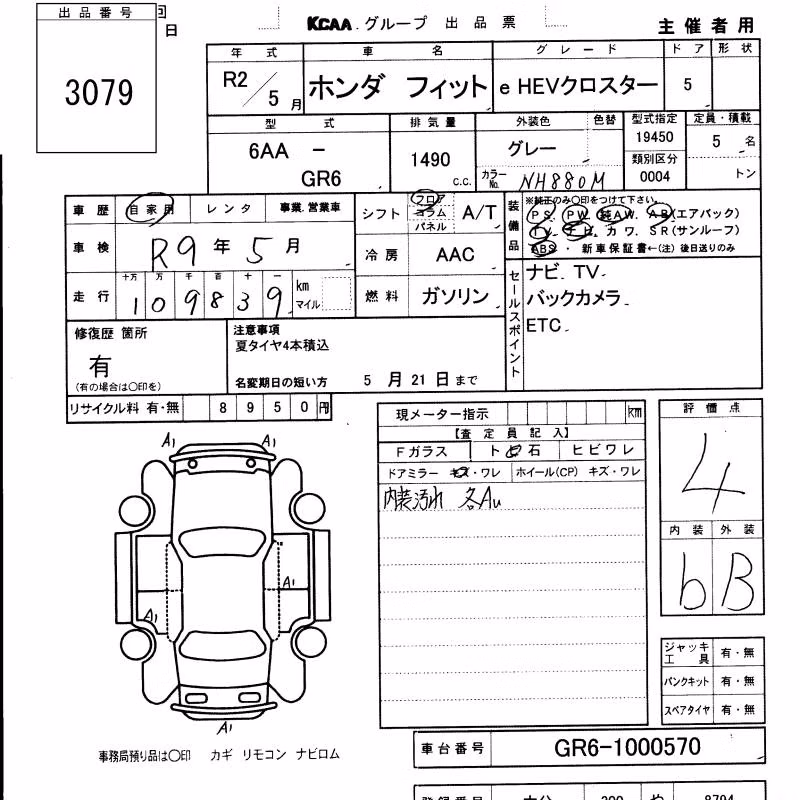 出品番号
3079
回
日
KCAA.グループ 出品票
主催者用
年式 車名 グレード ドア 形状
R2/5月 ホンダ フィット e HEVクロスター 5
型式 排気量 外装色 色替 型式指定 定員・積載
6AA - GR6 1490 C.C. グレー 19450 5 名
カラーNo. NH880M 類別区分 0004 トン
車歴 自家用 レンタ 事業.営業車
シフト フロア コラム パネル A/T
装備品
※純正のみ〇印をつけて下さい。
PS. PW. 純AW. AB(エアバック)
カワ. SR(サンルーフ)
ABS・ 新車保証書←(注)後日送りのみ
車検 R9年5月
冷房 AAC
走行 十万 万 千 百 十 一
1 0 9 8 3 9 km マイル
燃料 ガソリン
セールスポイント
ナビ. TV.
バックカメラ.
ETC.
修復歴 箇所
有
(有の場合は〇印を)
注意事項
夏タイヤ4本積込
名変期日の短い方 5月21日まで
リサイクル料 有・無 8950円
現メーター指示 km
【査定員記入】
Fガラス ト石 ヒビワレ
ドアミラー キズ・ワレ ホイール(CP) キズ・ワレ
内装汚れ 各Au
評価点
4
内装 外装
b B
A1 A1
A1
A1
A1
ジャッキ工具 有・無
パンクキット 有・無
スペアタイヤ 有・無
事務局預り品は〇印 カギ リモコン ナビロム
車台番号 GR6-1000570